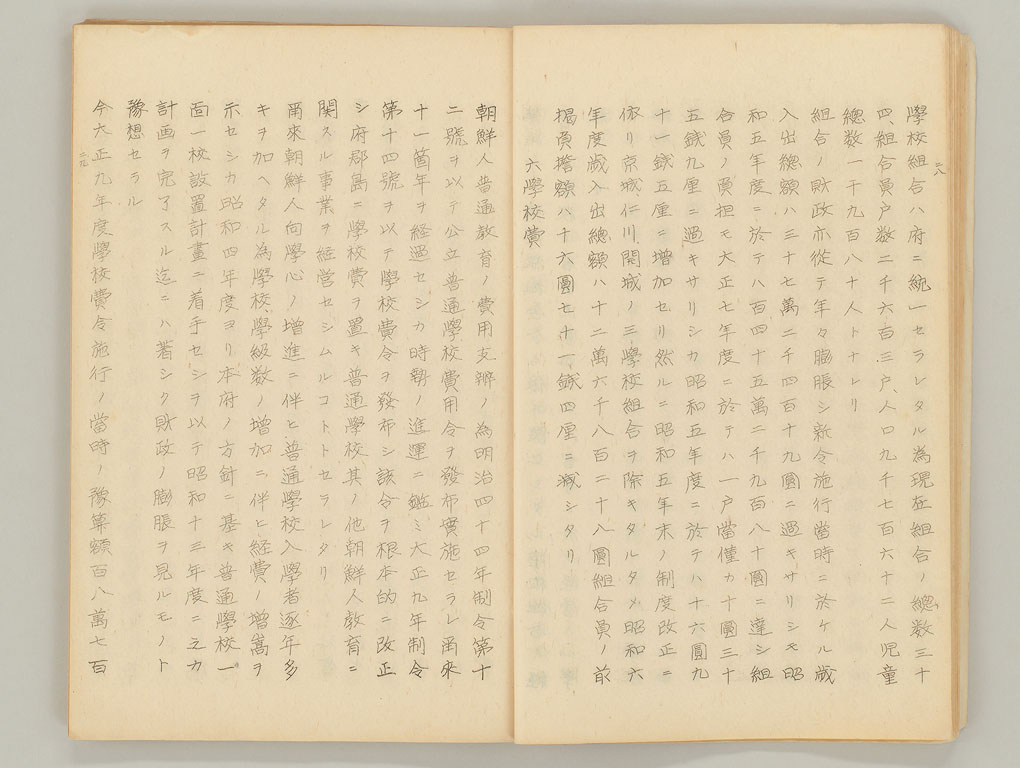 二八
學校組合ハ府ニ統一セラレタル為現在組合ノ總数三十
四、組合員戸数二千六百三戸、人口九千七百六十二人児童
總数一千九百八十人トナレリ
組合ノ財政亦從テ年々膨脹シ新令施行當時ニ於ケル歳
入出總額ハ三十七萬二千四百十九圓ニ過キサリシモ昭
和五年度ニ於テハ八百四十五萬二千九百八十圓ニ達シ組
合員ノ負担モ大正七年度ニ於テハ一戸當僅カ十圓三十
五銭九厘ニ過キサリシカ昭和五年度ニ於テハ十六圓九
十一銭五厘ニ増加セリ然ルニ昭和五年末ノ制度改正ニ
依リ京城仁川開城ノ三學校組合ヲ除キタルタメ昭和六
年度歳入出總額ハ十二萬六千八百二十八圓組合員ノ前
掲負擔額ハ十六圓七十一銭四厘ニ減シタリ
六學校費
朝鮮人普通教育ノ費用支辨ノ為明治四十四年制令第十
二號ヲ以テ公立普通學校費用令ヲ發布實施セラレ甭來
十一箇年ヲ経過セシカ時勢ノ進運ニ鑑ミ大正九年制令
第十四號ヲ以テ學校費令ヲ發布シ該令ヲ根本的ニ改正
シ府郡島ニ學校費ヲ置キ普通學校其ノ他朝鮮人教育ニ
関スル事業ヲ経営セシムルコトトセラレタリ
甭來朝鮮人向學心ノ増進ニ伴ヒ普通學校入學者逐年多
キヲ加ヘタル為學校、學級数ノ増加ニ伴ヒ経費ノ増嵩ヲ
示セシカ昭和四年度ヨリ本府ノ方針ニ基キ普通學校一
面一校設置計畫ニ着手セシヲ以テ昭和十三年度ニ之カ
計画ヲ完了スル迄ニハ著シク財政ノ膨脹ヲ見ルモノト
豫想セラル
今大正九年度學校費令施行ノ當時ノ豫算額百八萬七百
二九